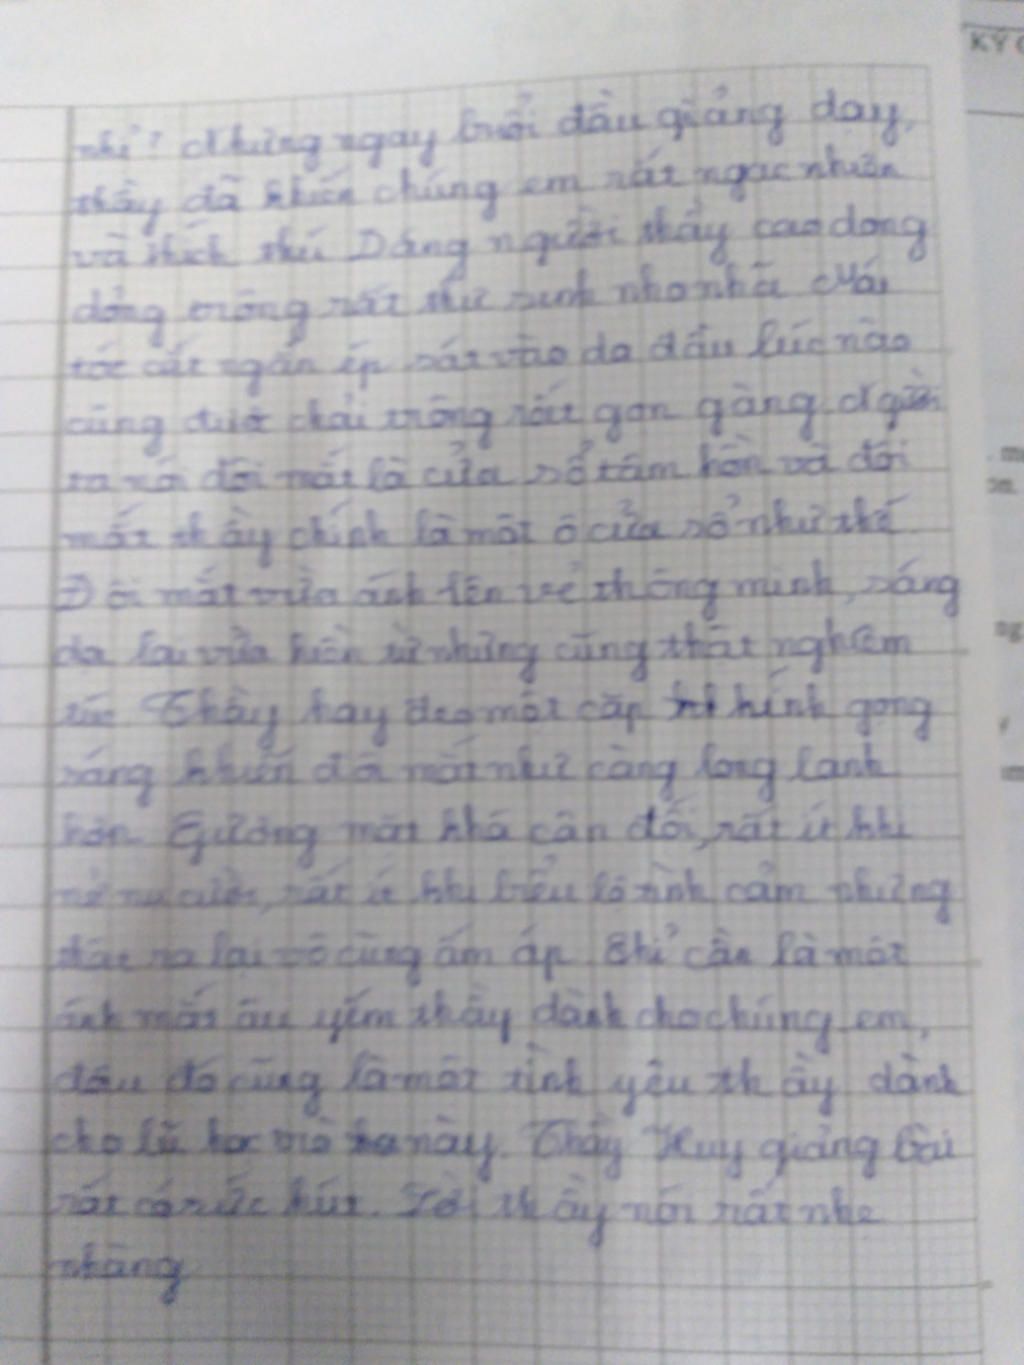 nhỉ? Nhưng ngay buổi đầu giảng dạy,
thầy đã khiến chúng em rất ngạc nhiên
và thích thú Dáng người thầy cao dong
dỏng trông rất thư sinh nho nhã Mái
tóc cắt ngắn ép sát vào da đầu lúc nào
cũng được chải trông rất gọn gàng. Người
ta nói đôi mắt là cửa sổ tâm hồn và đôi
mắt thầy chính là một ô cửa sổ như thế
Đôi mắt vừa ánh lên vẻ thông minh, sáng
dạ lại vừa hiền từ nhưng cũng thật nghiêm
túc Thầy hay đeo một cặp kính gọng
khiến đôi mắt như càng long lanh
hơn. Gương mặt khá cân đối, rất ít khi
nở nụ cười, rất ít khi biểu lộ tình cảm nhưng
thật ra lại vô cùng ấm áp. Chỉ cần là một
ánh mắt âu yếm thầy dành cho chúng em,
đâu đó cũng là một tình yêu thầy dành
cho lũ học trò này. Thầy Huy giảng bài
rất có sức hút. Lời thầy nói rất nhẹ
nhàng
KÝ